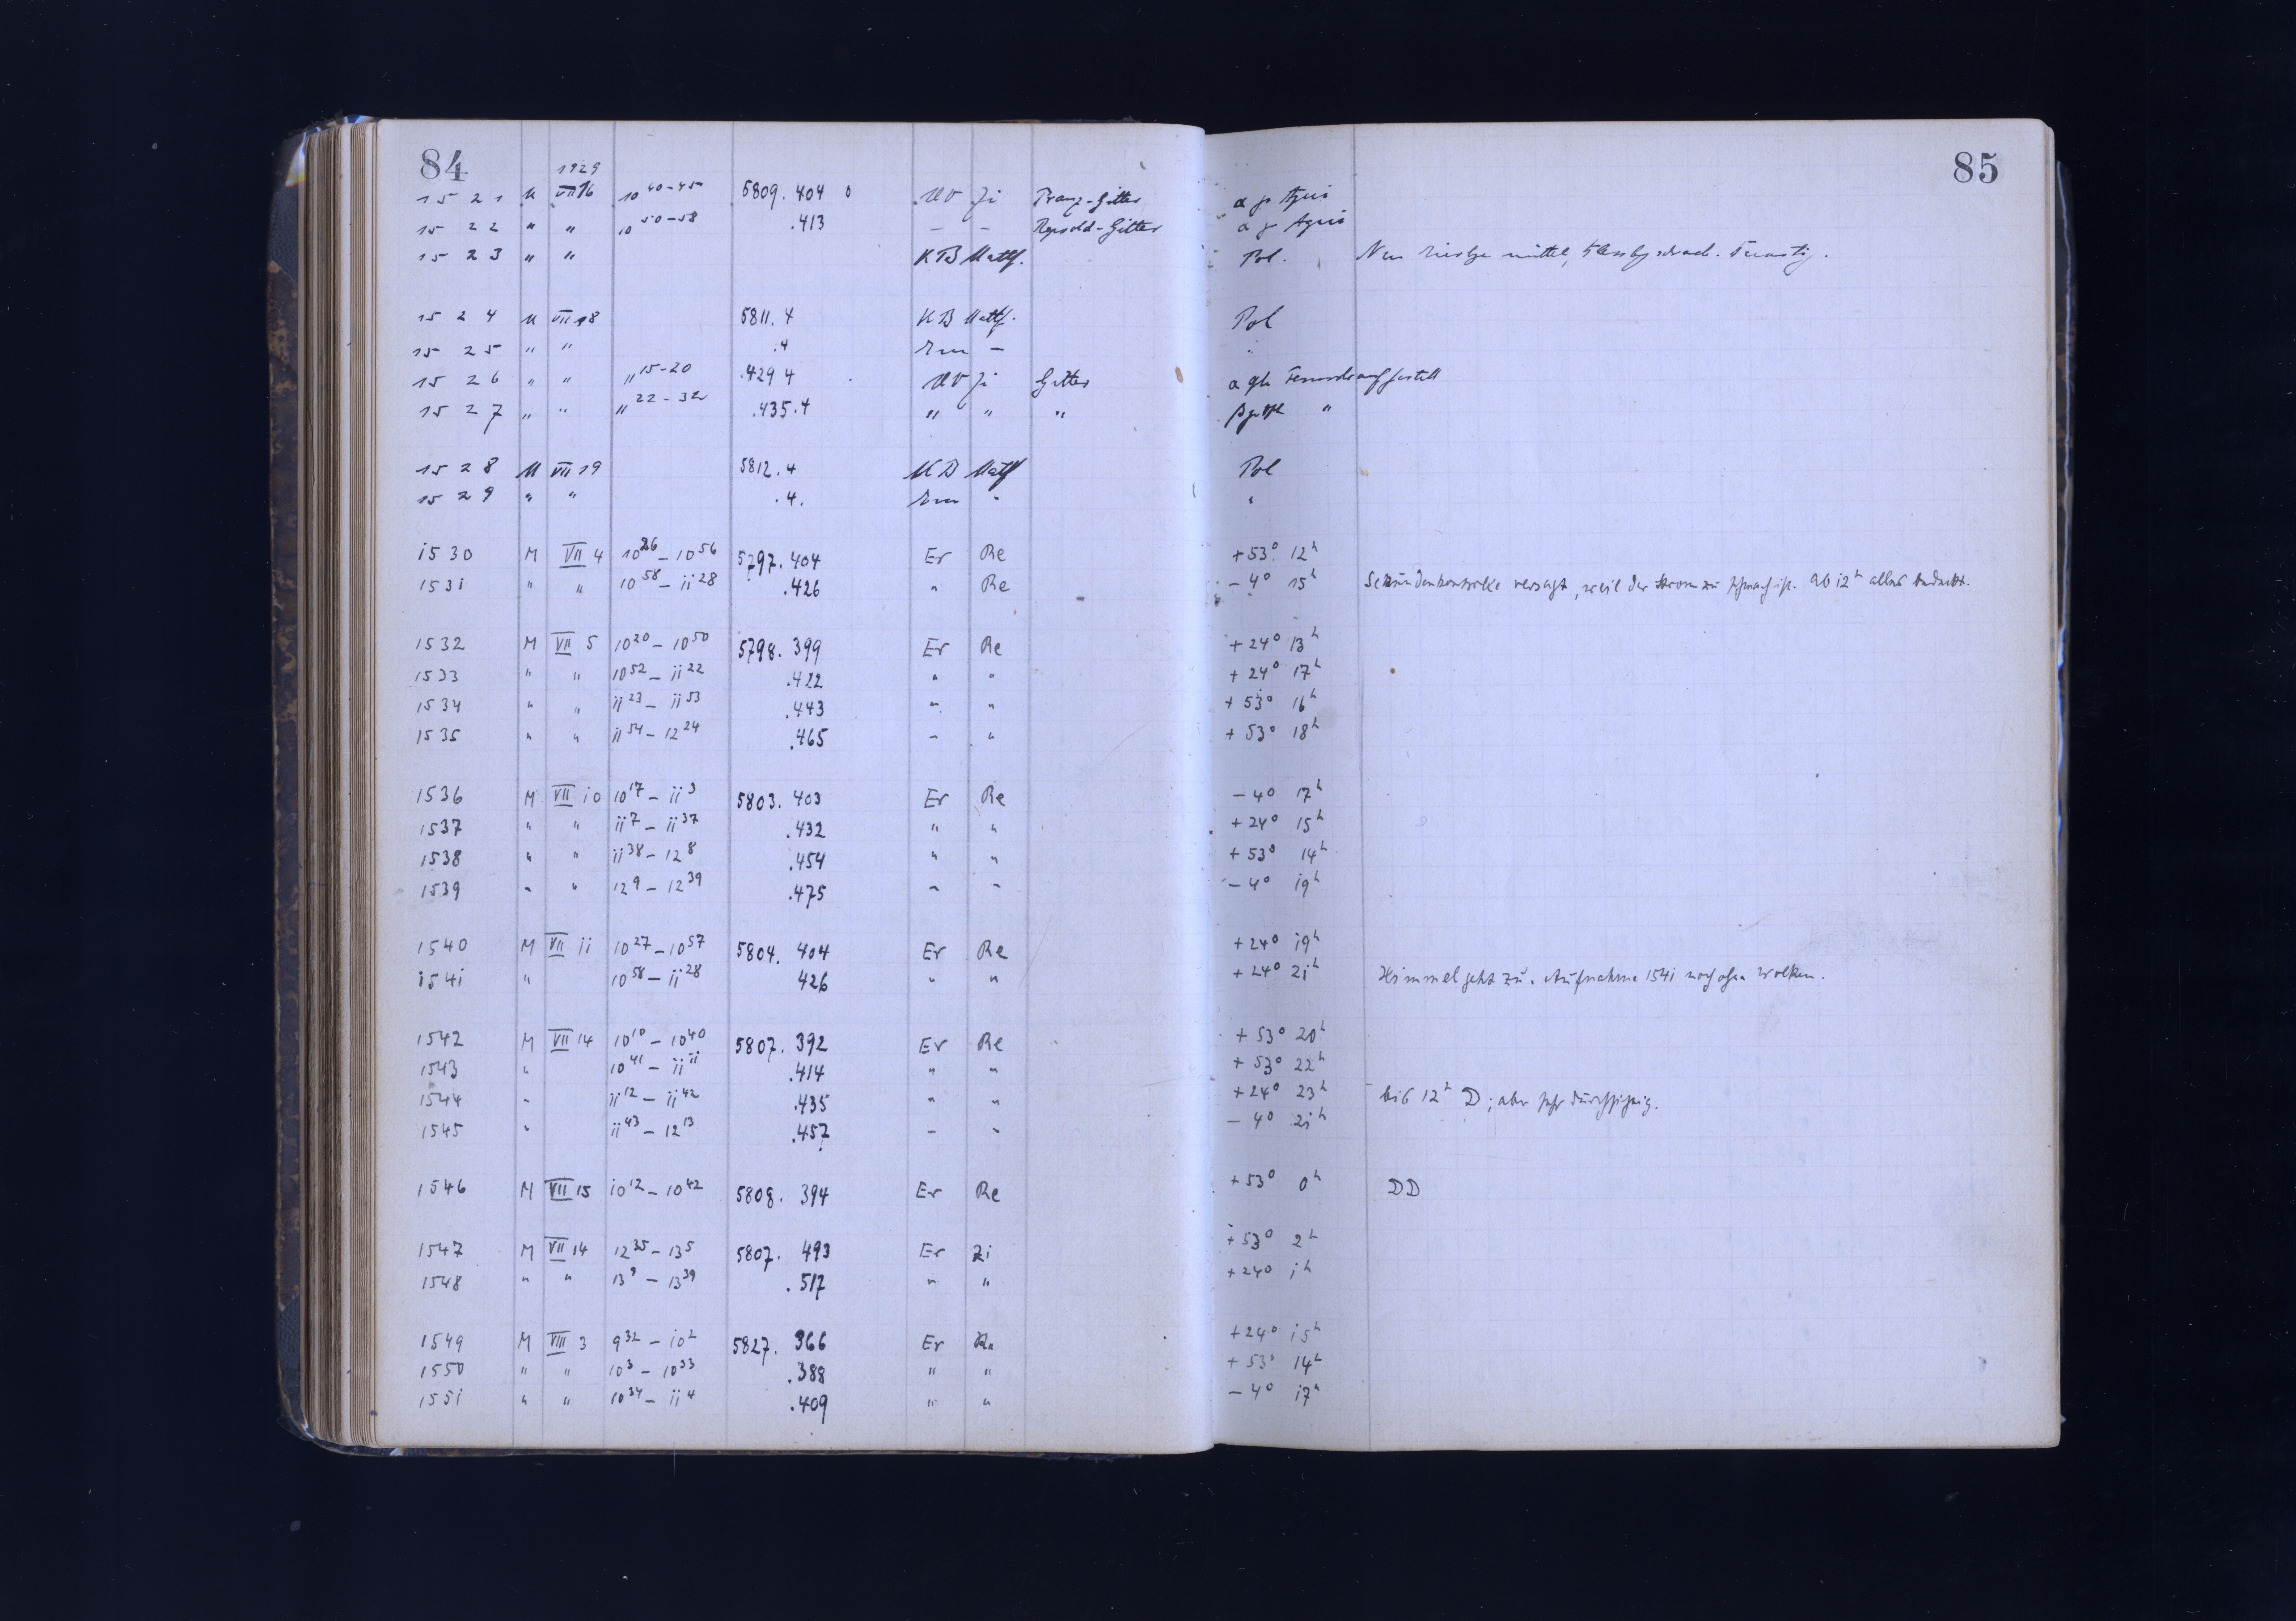 84
1929
1521 M VII 16 10 40-45 5809.404 UV Zi Franz-Gitter
1522 " " 10 50-58 .413 – – Repsold-Gitter
1523 " " KB
1524 M VII 18 5811.4 KB
1525 " " .4 –
1526 " " 11 15-20 .429 4 UV Zi Gitter
1527 " " 11 22-32 .435.4 " " "
1528 M VII 19 5812.4 KB
1529 " " .4.
1530 M VII 4 10 26 – 10 56 5797.404 Er Re
1531 " " 10 58 – 11 28 .426 " Re
1532 M VII 5 10 20 – 10 50 5798.399 Er Re
1533 " " 10 52 – 11 22 .422 " "
1534 " " 11 23 – 11 53 .443 " "
1535 " " 11 54 – 12 24 .465 " "
1536 M VII 10 10 17 – 11 3 5803.403 Er Re
1537 " " 11 7 – 11 37 .432 " "
1538 " " 11 38 – 12 8 .454 " "
1539 " " 12 9 – 12 39 .475 " "
1540 M VII 11 10 27 – 10 57 5804.404 Er Re
1541 " 10 58 – 11 28 426 " "
1542 M VII 14 10 10 – 10 40 5807.392 Er Re
1543 " 10 41 – 11 11 .414 " "
1544 " 11 12 – 11 42 .435 " "
1545 " 11 43 – 12 13 .457 " "
1546 M VII 15 10 12 – 10 42 5808.394 Er Re
1547 M VII 14 12 35 – 13 5 5807.493 Er Zi
1548 " " 13 9 – 13 39 .517 " "
1549 M VIII 3 9 32 – 10 2 5827.366 Er
1550 " " 10 3 – 10 33 .388 " "
1551 " " 10 34 – 11 4 .409 " "
85
α
α
Pol.
Pol
Pol
+53° 12h
–4° 15h Sekundenkontrolle versagt, weil der Strom zu schwach ist. Ab 12h alles bedeckt.
+24° 13h
+24° 17h
+53° 16h
+53° 18h
–4° 17h
+24° 15h
+53° 14h
–4° 19h
+24° 19h
+24° 21h Himmel geht zu. Aufnahme 1541 noch ohne Wolken.
+53° 20h
+53° 22h
+24° 23h bis 12h D; aber sehr durchsichtig.
–4° 21h
+53° 0h DD
+53° 2h
+24° 1h
+24° 15h
+53° 14h
–4° 17h